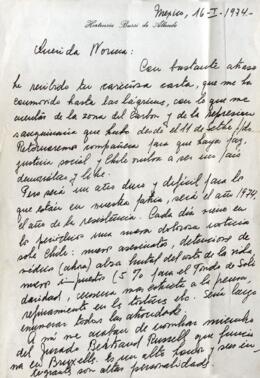 Mexico, 16-I-1974.-
Hortensia Bussi de Allende
Querida Norma:
Con bastante atraso
he recibido tu cariñosa carta, que me ha
conmovido hasta las lágrimas, con lo que me
cuentas de la zona del Carbon y de la Represion
sanguinaria que hubo desde el 11 de
Retornaremos compañera para que haya paz,
justicia social y Chile vuelva a ser un país
democrático y libre.
Pero será un año duro y difícil para los
que están en nuestra patria, será el año 1974,
año de la resistencia. Cada día en
los periódicos una nueva dolorosa noticia
sobre Chile: nuevos asesinatos, detenciones de
médicos (ahora) alza del costo de la vida,
nuevos impuestos (5% para el Fondo de Soli
daridad, censura más estricta a la prensa,
refinamiento en la tortura etc. Sería largo
enumerar todas las atrocidades.
A mi me acaban de nombrar miembro
del Jurado Bertrand Russell que funciona
en Bruxelles. Es un alto honor y sus in-
tegrantes son altas personalidades